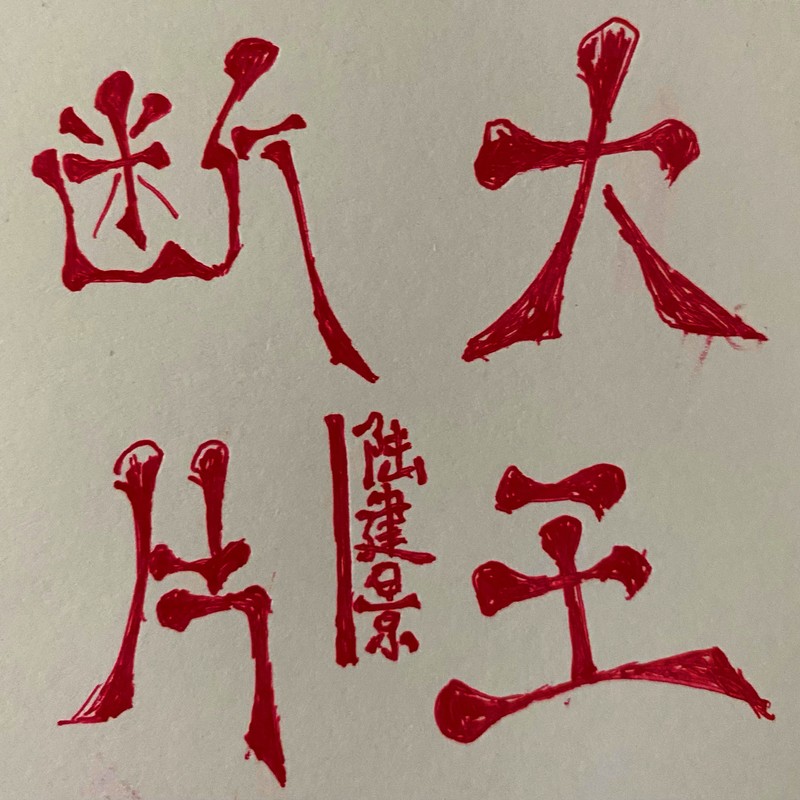 大王
断片
陆建景